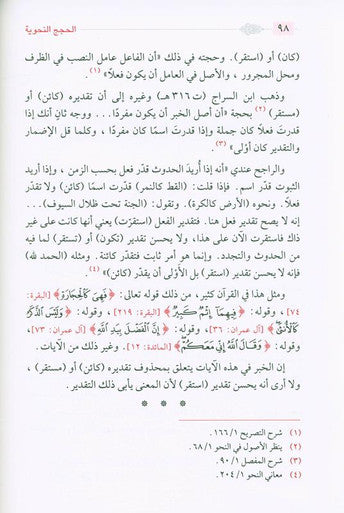 ٩٨
الحجج النحوية
(كان) أو (استقر). وحجته في ذلك «أن الفاعل عامل النصب في الظرف
ومحل المجرور ، والأصل في العامل أن يكون فعلًا»(١).
وذهب ابن السراج (ت ٣١٦ هـ) وغيره إلى أن تقديره (كائن) أو
(مستقر)(٢) بحجة «أن أصل الخبر أن يكون مفردًا . . . ووجه ثانٍ أنك إذا
قدرتَ فعلًا كان جملة وإذا قدرتَ اسمًا كان مفردًا ، وكلما قل الإضمار
والتقدير كان أولى»(٣).
والراجح عندي «أنه إذا أُريدَ الحدوث قدّر فعل بحسب الزمن ، وإذا أريد
الثبوت قدّر اسم. فإذا قلت: (القط كالنمر) قدّرت اسمًا (كائن) ولا تقدّر
فعلًا. ونحوه (الأرض كالكرة). وتقول: (الجنة تحت ظلال السيوف)...
إنه لا يصح تقدير فعل هنا. فتقدير الفعل (استقرّت) يعني أنها كانت على غير
ذاك فاستقرت الآن على هذا، ولا يحسن تقدير (تكون) أو (تستقر) لما فيه
من الحدوث والتجدد. وإنما هو أمر ثابت فتقدّر كائنة. ومثله (الحمد لله)
فإنه لا يحسن تقدير (استقر) بل الأَولى أن يقدّر (كائن)»(٤).
ومثل هذا في القرآن كثير، من ذلك قوله تعالى: ﴿فَهِىَ كَٱلْحِجَارَةِ﴾ [البقرة:
٧٤] ، وقوله: ﴿فِيهِمَآ إِثْمٌ كَبِيرٌ﴾ [البقرة: ٢١٩]، وقوله: ﴿وَلَيْسَ ٱلذَّكَرُ
كَٱلْأُنثَىٰ﴾ [آل عمران: ٣٦]، وقوله: ﴿إِنَّ ٱلْفَضْلَ بِيَدِ ٱللَّهِ﴾ [آل عمران: ٧٣]،
وقوله: ﴿وَقَالَ ٱللَّهُ إِنِّى مَعَكُمْ﴾ [المائدة: ١٢]. وغير ذلك من الآيات.
إن الخبر في هذه الآيات يتعلق بمحذوف تقديره (كائن) أو (مستقر) ،
ولا أرى أنه يحسن تقدير (استقر) لأن المعنى يأبى ذلك التقدير.
* * *
(١) شرح التصريح ١/ ١٦٦.
(٢) ينظر الأصول في النحو ١/ ٦٨.
(٣) شرح المفصل ١/ ٩٠.
(٤) معاني النحو ١/ ٢٠٤.